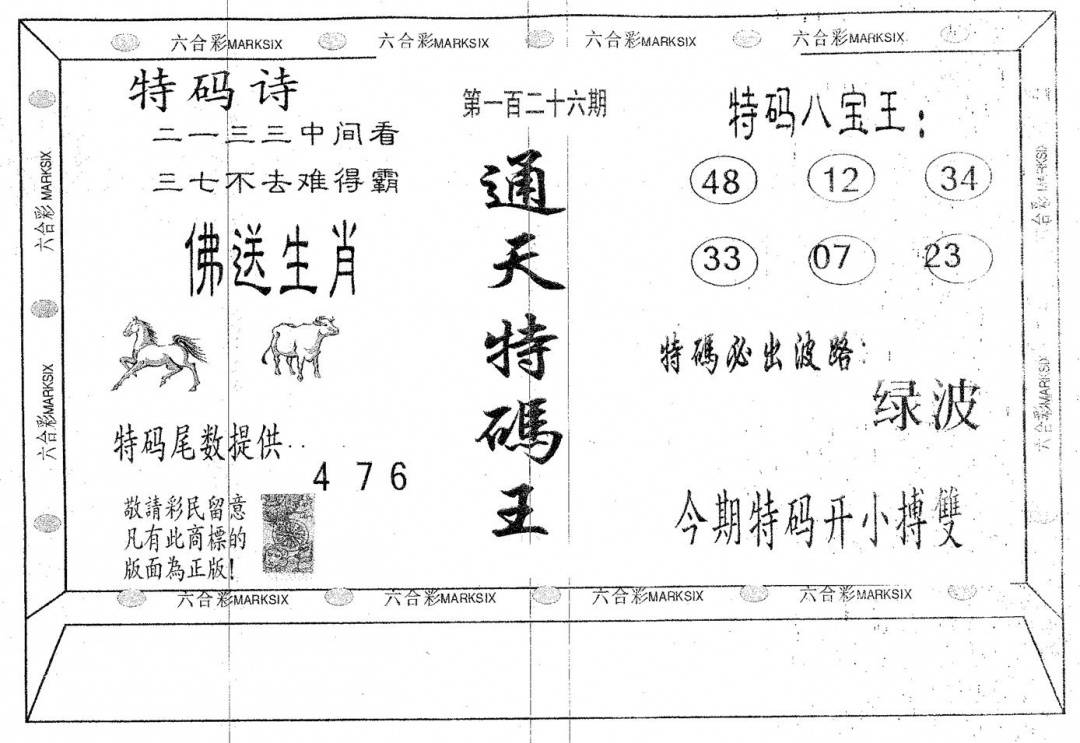 六合彩MARKSIX 六合彩MARKSIX 六合彩MARKSIX 六合彩MARKSIX
特码诗
二一三三中间看
三七不去难得霸
佛送生肖
特码尾数提供..
4 7 6
敬請彩民留意
凡有此商標的
版面為正版!
第一百二十六期
通
天
特
碼
王
特码八宝王:
48 12 34
33 07 23
特碼必出波路:
绿波
今期特码开小搏雙
六合彩MARKSIX
六合彩MARKSIX
六合彩MARKSIX
六合彩MARKSIX
六合彩MARKSIX 六合彩MARKSIX 六合彩MARKSIX 六合彩MARKSIX